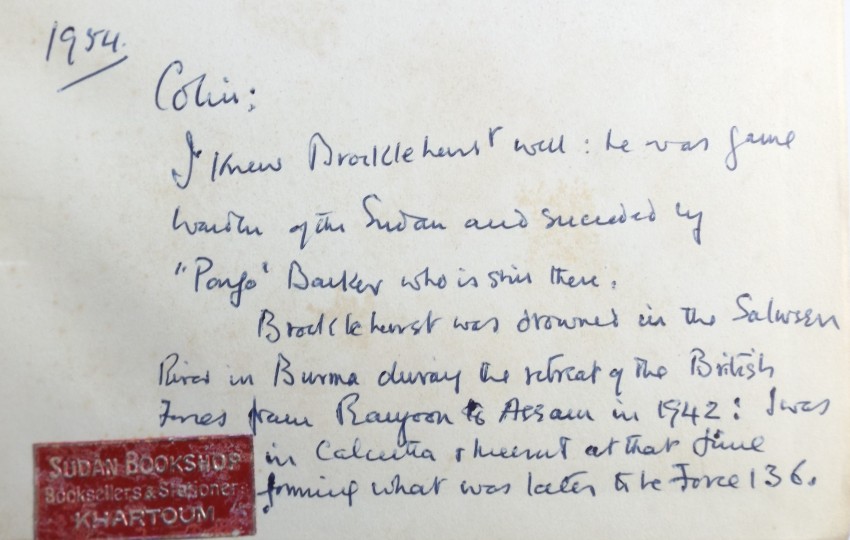 1954.
Colin:
I knew Brocklehurst well: he was game
Warden of the Sudan and succeeded by
"Pongo" Barker who is still there.
Brocklehurst was drowned in the Salween
River in Burma during the retreat of the British
Forces from Rangoon to Assam in 1942: I was
in Calcutta & Meerut at that time
forming what was later to be Force 136.
SUDAN BOOKSHOP
Booksellers & Stationers
KHARTOUM